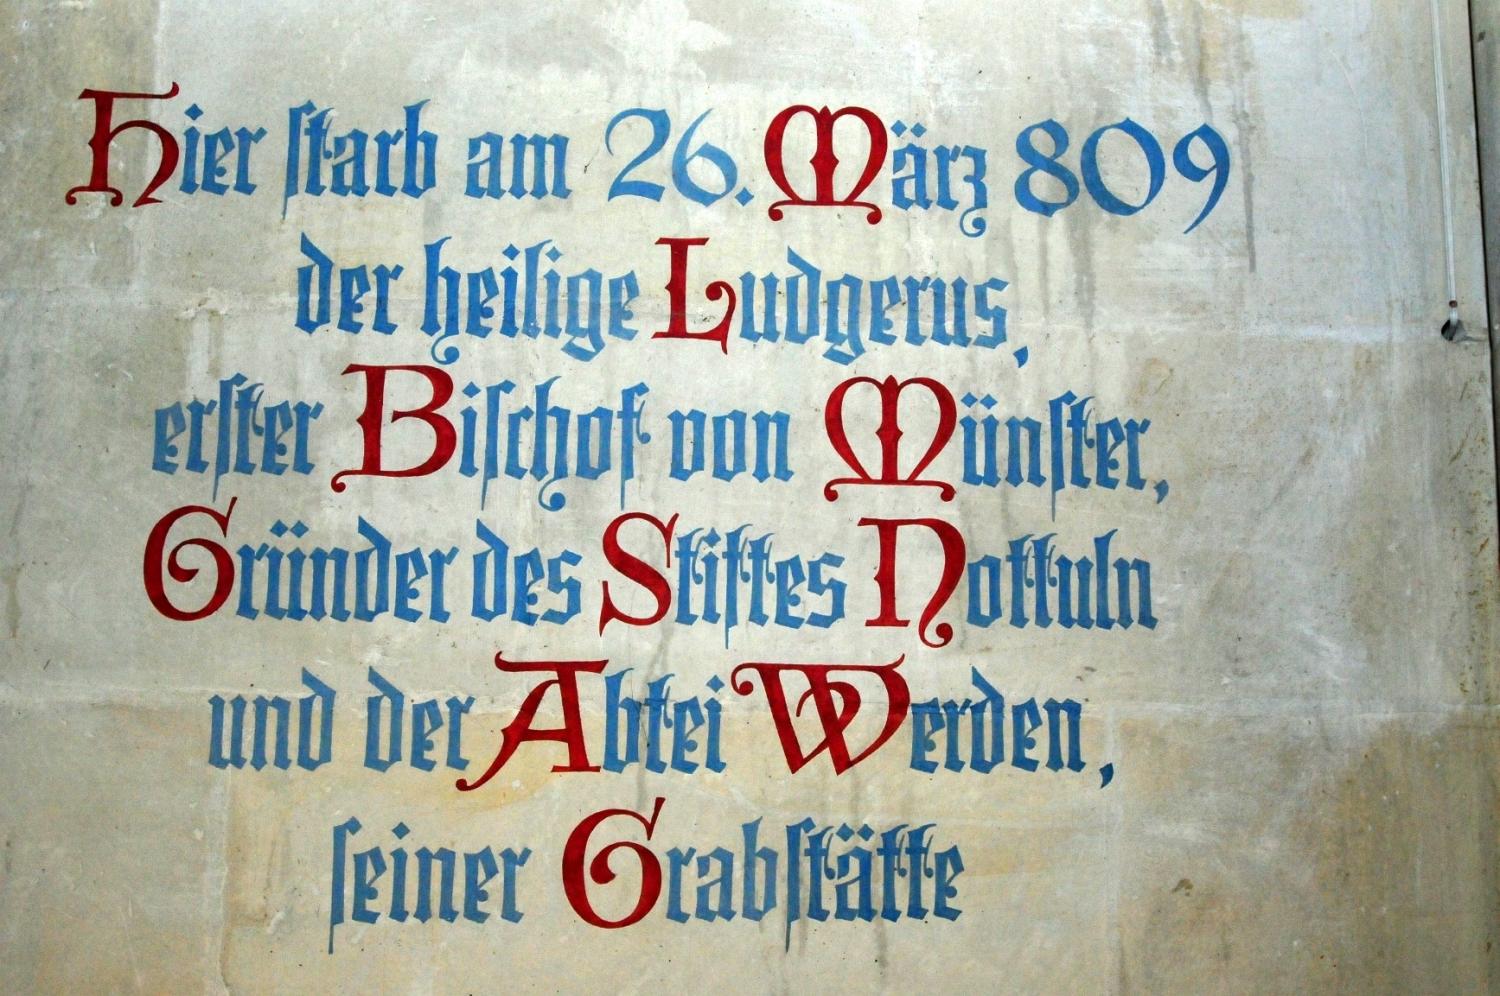 Hier starb am 26. März 809
der heilige Ludgerus,
erster Bischof von Münster,
Gründer des Stiftes Nottuln
und der Abtei Werden,
seiner Grabstätte